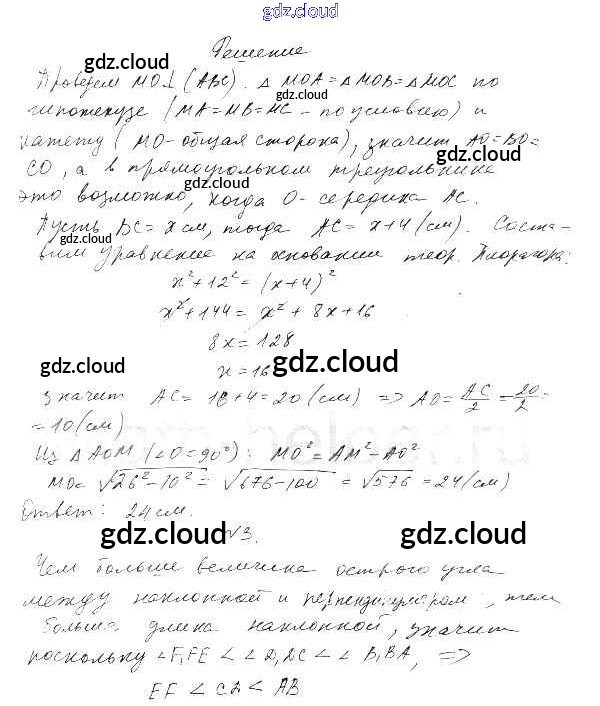 gdz.cloud
Решение
gdz.cloud
Проведем MO⊥(ABC). △MOA=△MOB=△MOC по
gdz.cloud
гипотенузе (MA=MB=MC - по условию) и
катету (MO - общая сторона), значит AO=BO=
gdz.cloud
CO, а в прямоугольном треугольнике
gdz.cloud
это возможно, когда O - середина AC.
Пусть BC = x см, тогда AC = x+4 (см). Соста-
gdz.cloud
вим уравнение на основании теор. Пифагора:
x²+12²=(x+4)²
x²+144 = x²+8x+16
8x=128
gdz.cloud
gdz.cloud
x=16
Значит AC = 16+4=20 (см) => AO=AC/2=20/2=
=10(см)
Из △AOM (∠O=90°): MO²=AM²-AO²
MO=√26²-10²=√676-100=√576=24(см)
Ответ: 24 см.
gdz.cloud
gdz.cloud
√3.
Чем больше величина острого угла
между наклонной и перпендикуляром, тем
больше длина наклонной, значит
gdz.cloud
gdz.cloud
поскольку ∠F,FE < ∠D,DC < ∠B,BA, =>
EF < CD < AB